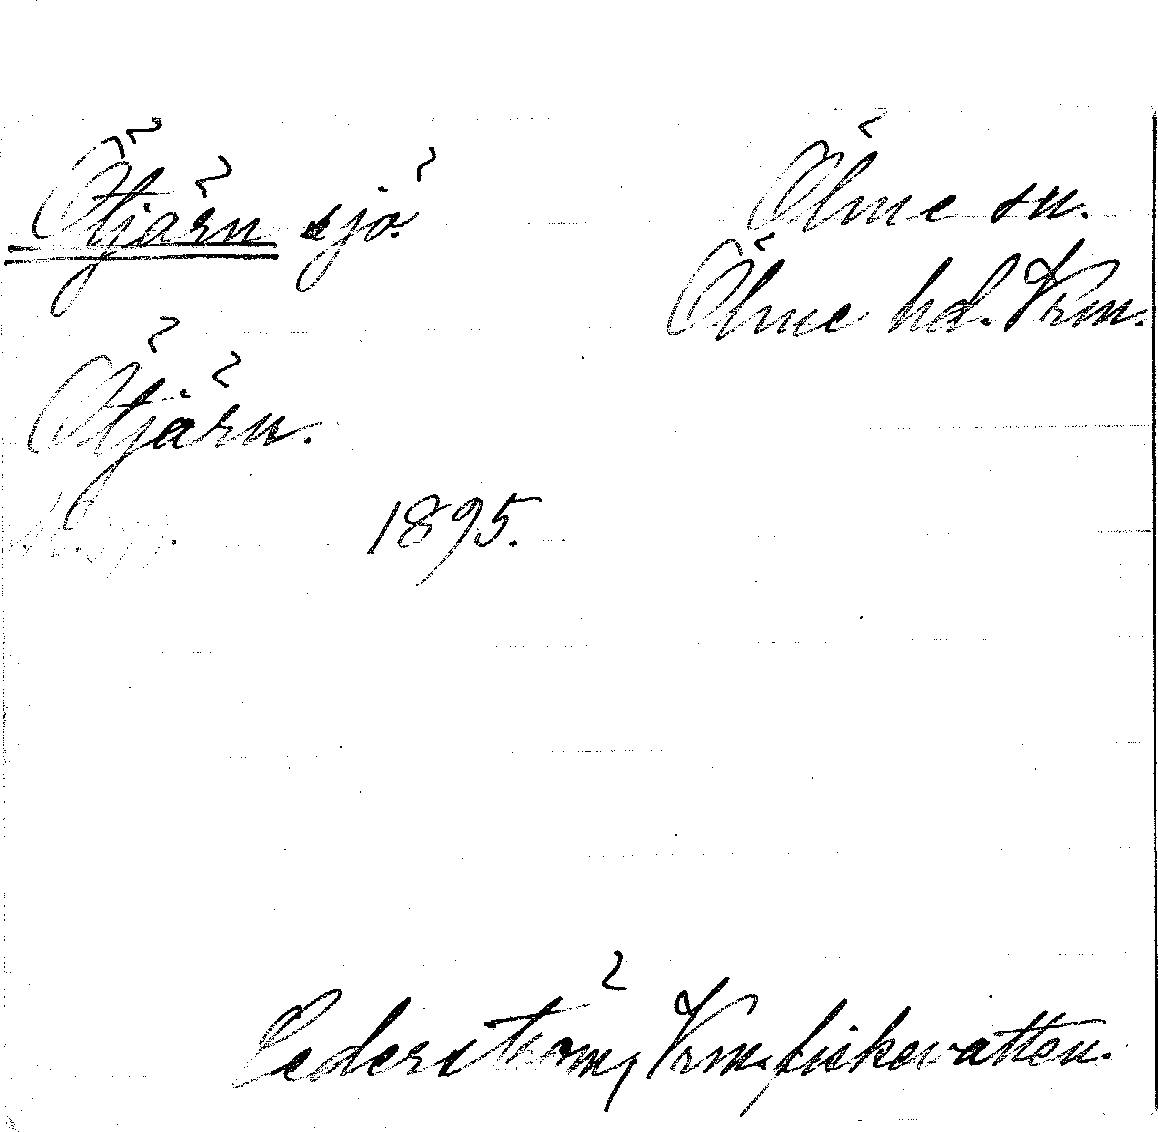 Ötjärn sjö.
Ölme sn.
Ölme hd. Vrm.
Ötjärn.
1895.
Cederström, Vrm. fiskevatten.